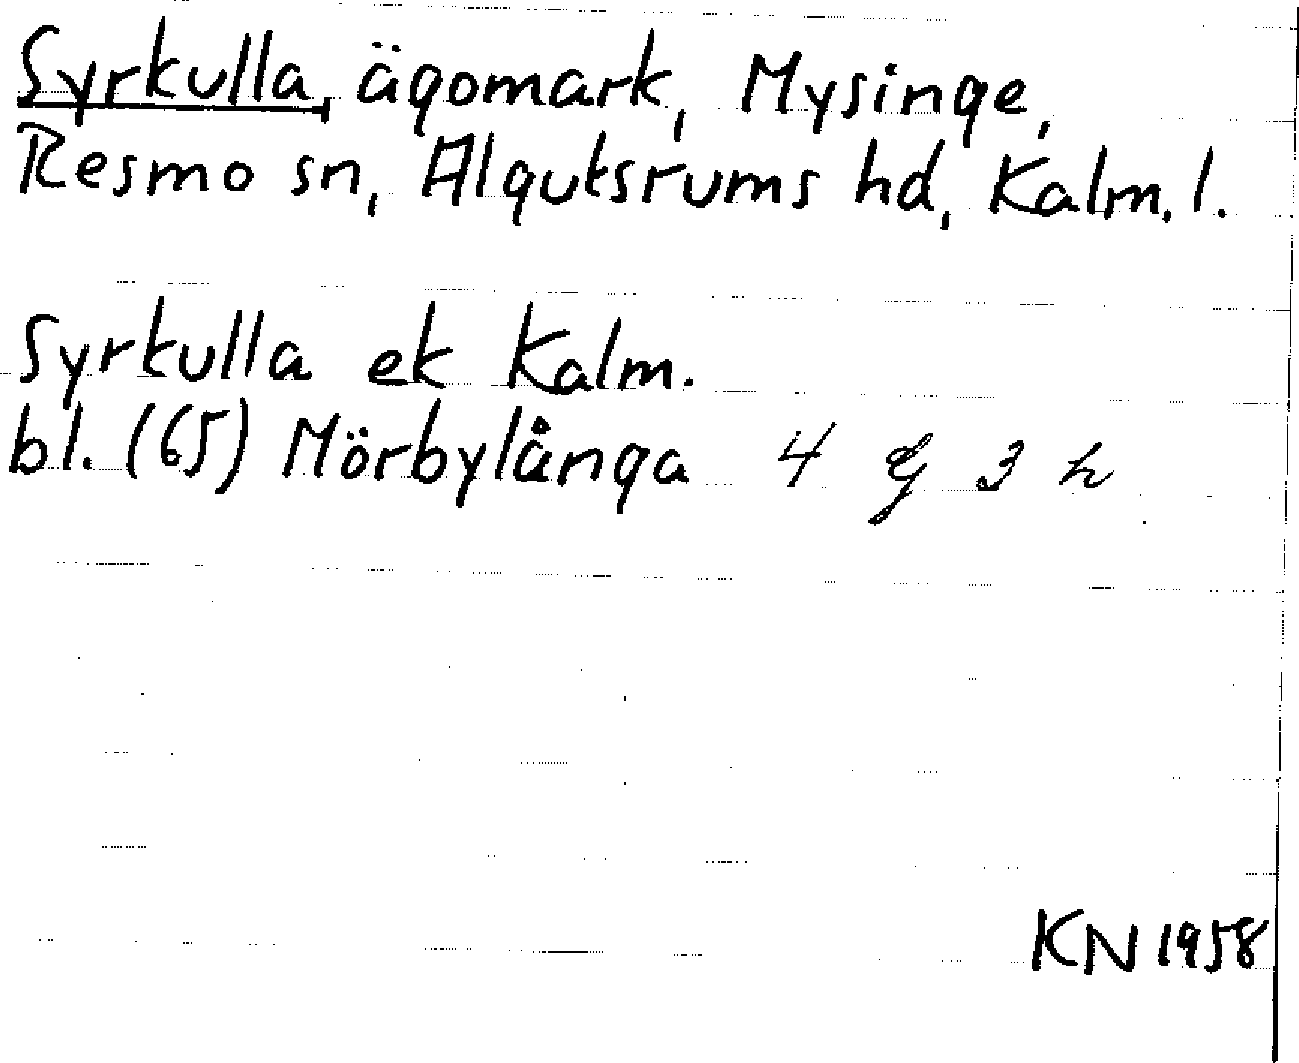 Syrkulla, ägomark, Mysinge,
Resmo sn, Algutsrums hd, Kalm. l.
Syrkulla ek Kalm.
bl. (65) Mörbylånga 4 G 3 h
KN 1958